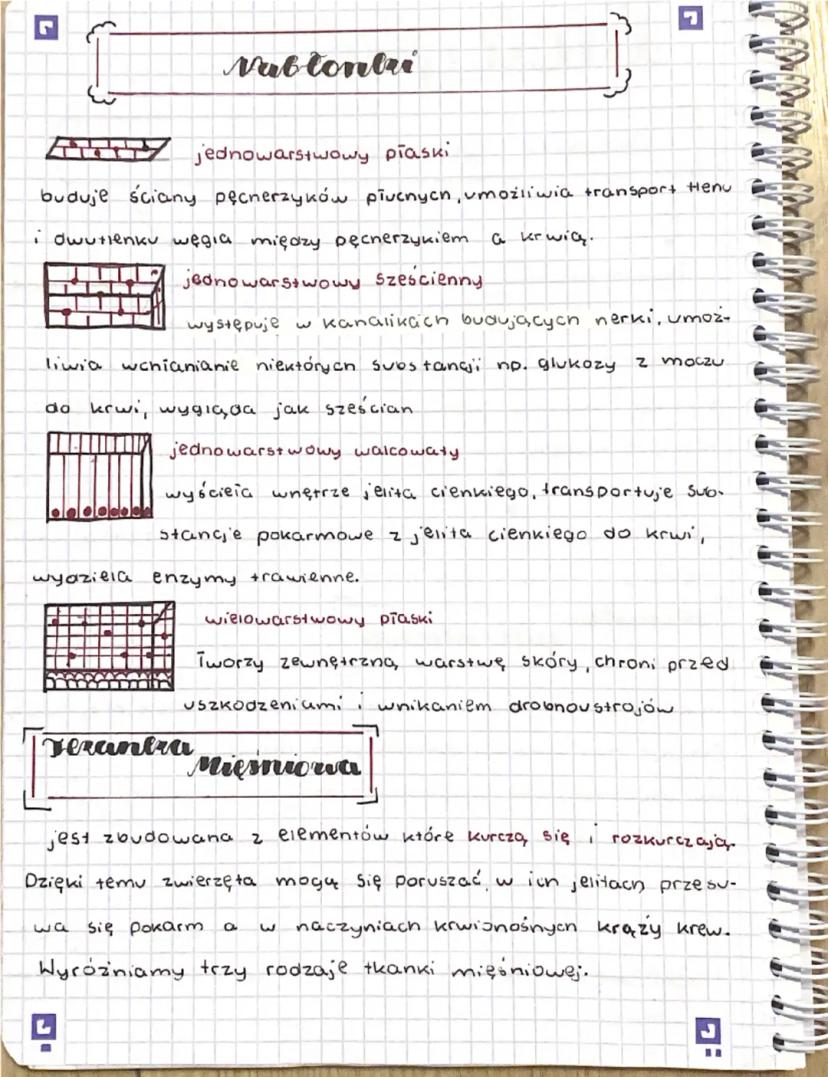 Nabłonki
jednowarstwowy płaski
buduje ściany pęcherzyków płucnych, umożliwia transport tlenu
i dwutlenku węgla między pęcherzykiem a krwią.
jednowarstwowy sześcienny
występuje w kanalikach budujących nerki, umoż-
liwia wchłanianie niektórych substancji np. glukozy z moczu
do krwi, wygląda jak sześcian
jednowarstwowy walcowaty
wyścieła wnętrze jelita cienkiego, transportuje sub-
stancje pokarmowe z jelita cienkiego do krwi,
wydziela enzymy trawienne.
wielowarstwowy płaski
Tworzy zewnętrzną warstwę skóry, chroni przed
uszkodzeniami i wnikaniem drobnoustrojów
Tkanka
Mięśniowa
jest zbudowana z elementów które kurczą się i rozkurczają.
Dzięki temu zwierzęta mogą się poruszać, w ich jelitach przesu-
wa się pokarm a w naczyniach krwionośnych krąży krew.
Wyróżniamy trzy rodzaje tkanki mięśniowej.